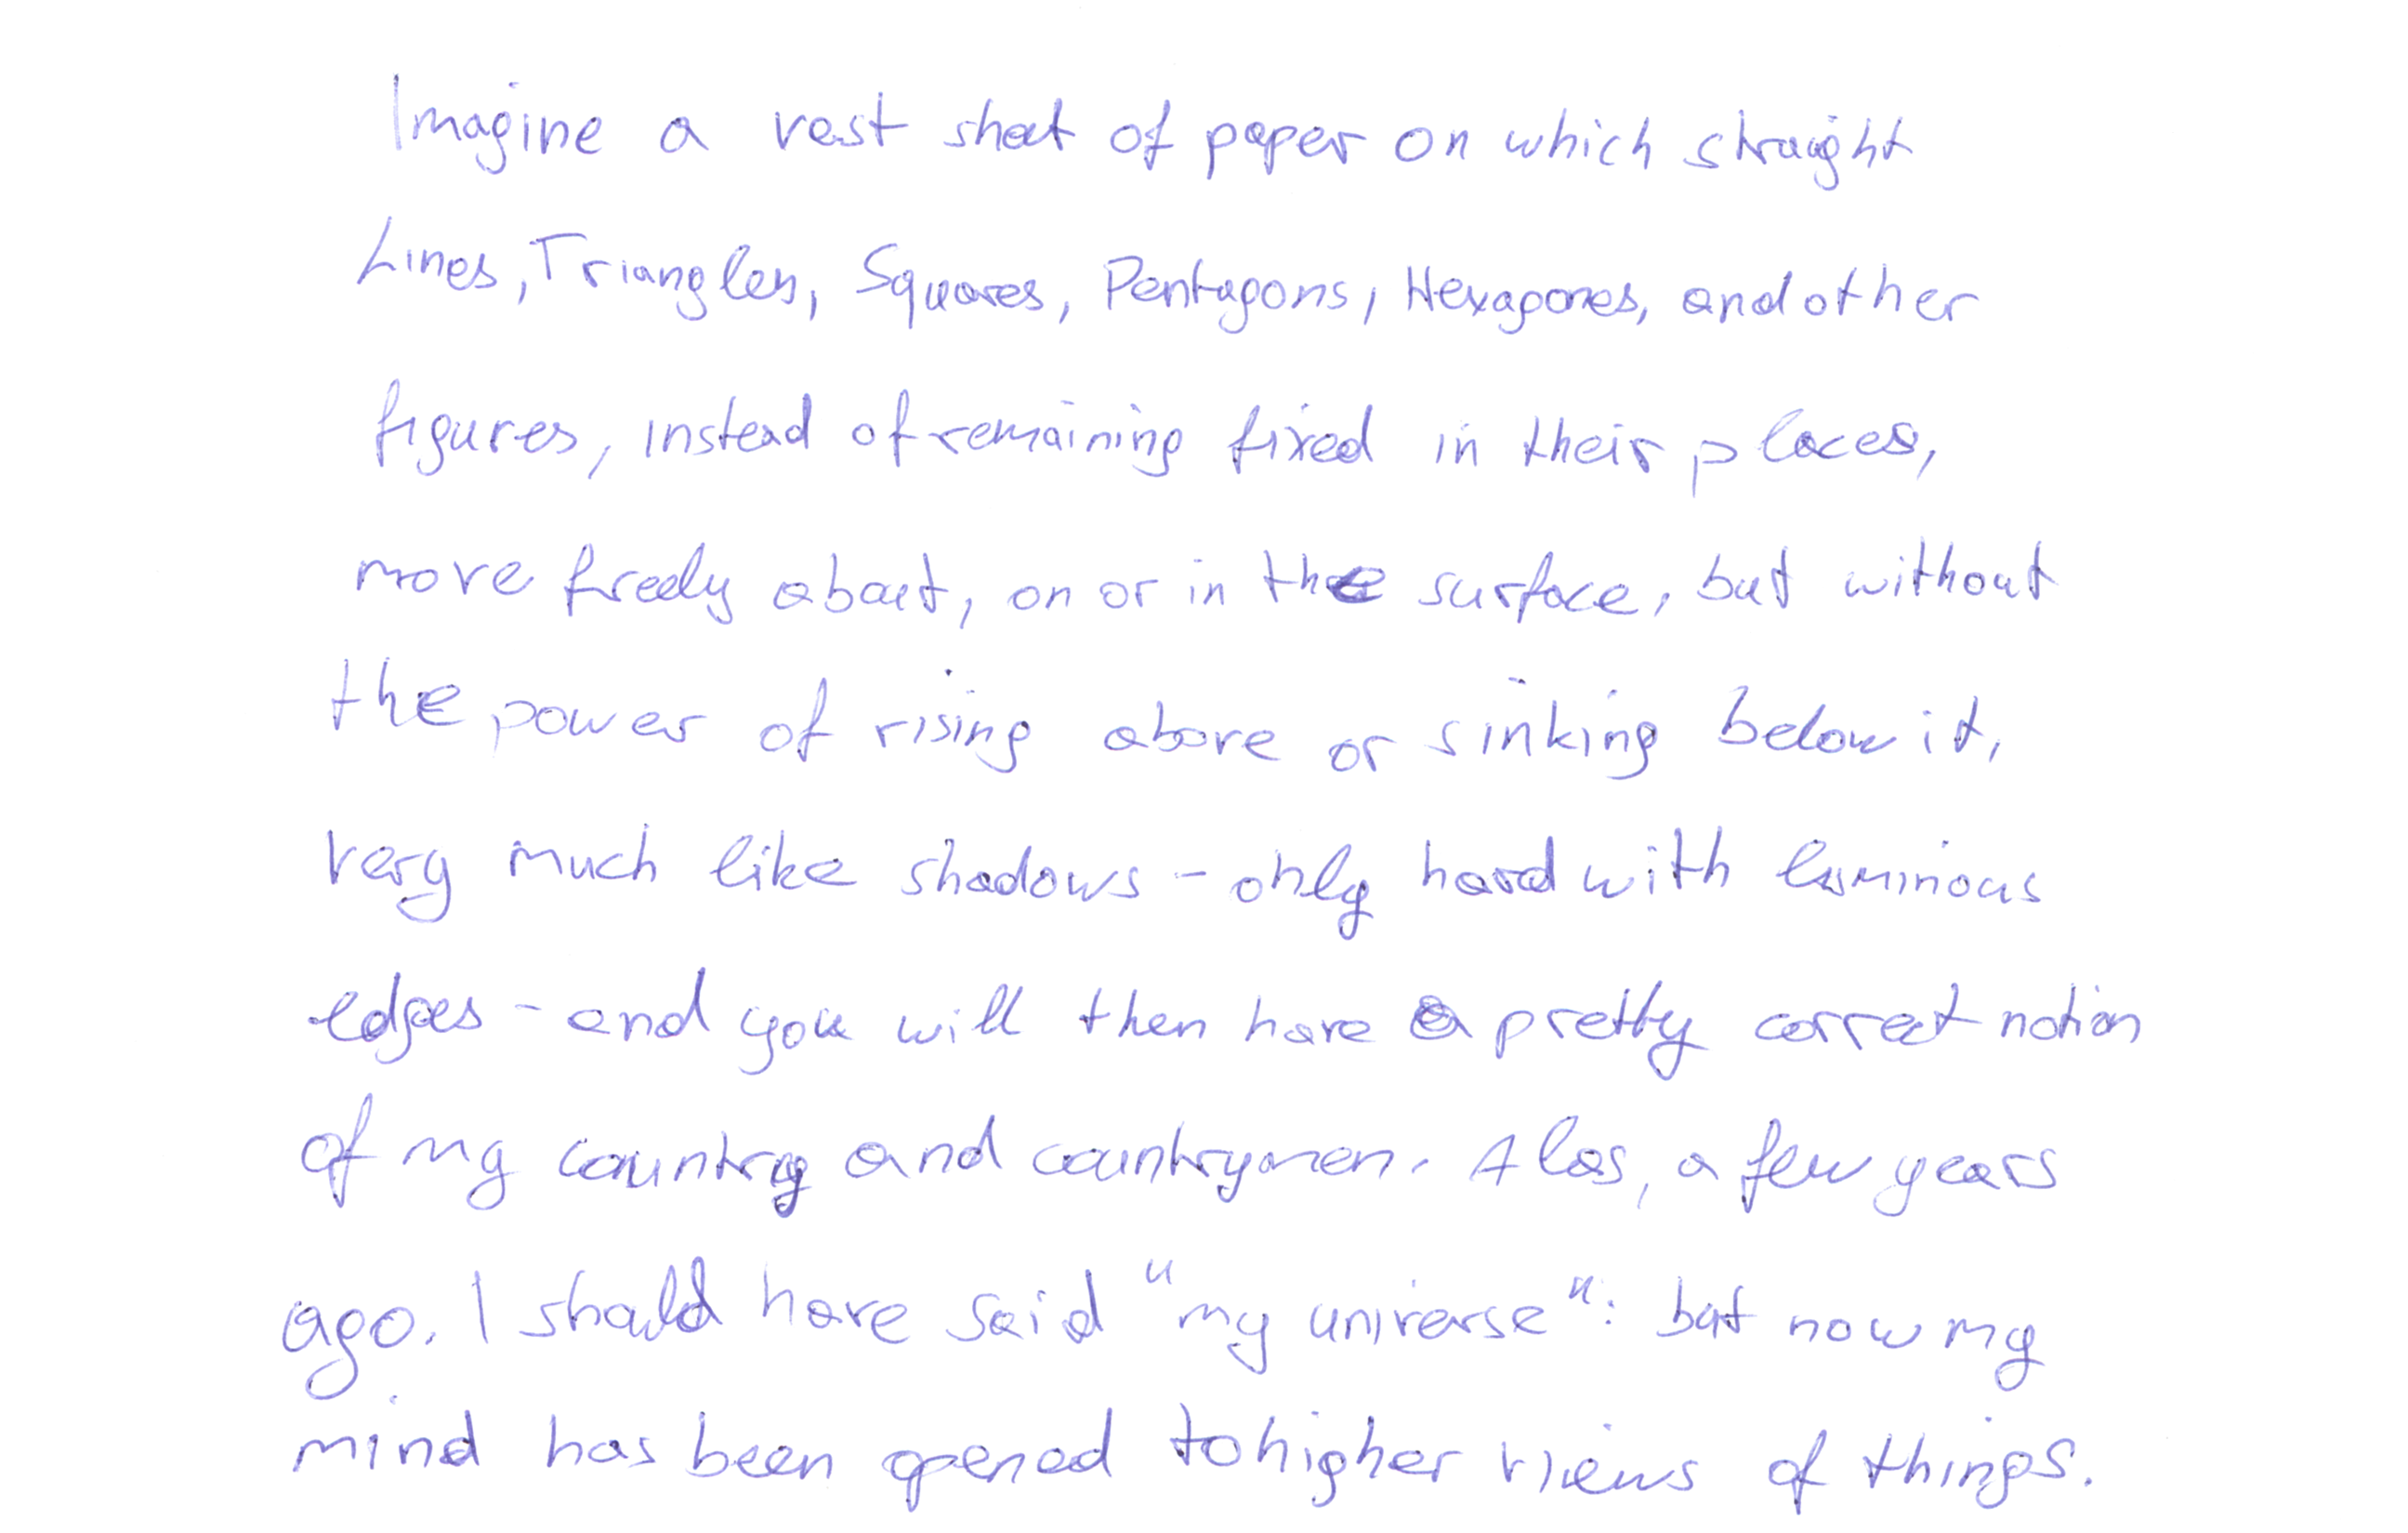 Imagine a vast sheet of paper on which straight
Lines, Triangles, Squares, Pentagons, Hexagones, and other
figures, instead of remaining fixed in their places,
move freely about, on or in the surface, but without
the power of rising above or sinking below it,
very much like shadows - only hard with luminous
edges - and you will then have a pretty correct notion
of my country and countrymen. Alas, a few years
ago. I should have said "my universe": but now my
mind has been opened to higher views of things.